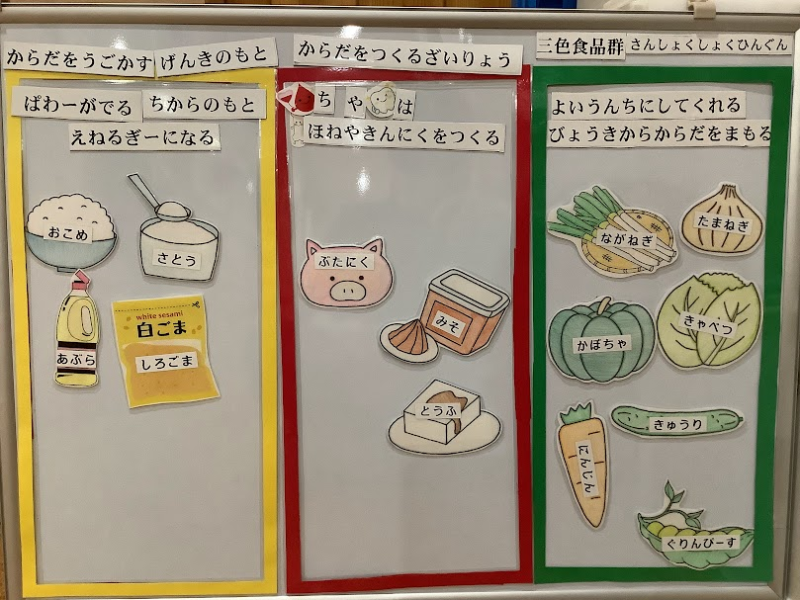 からだをうごかす げんきのもと
ぱわーがでる ちからのもと
えねるぎーになる
おこめ
さとう
あぶら
white sesami
白ごま
しろごま
からだをつくるざいりょう
ち や は
ほねやきんにくをつくる
ぶたにく
みそ
とうふ
三色食品群 さんしょくしょくひんぐん
よいうんちにしてくれる
びょうきからからだをまもる
ながねぎ
たまねぎ
かぼちゃ
きゃべつ
きゅうり
にんじん
ぐりんぴーす